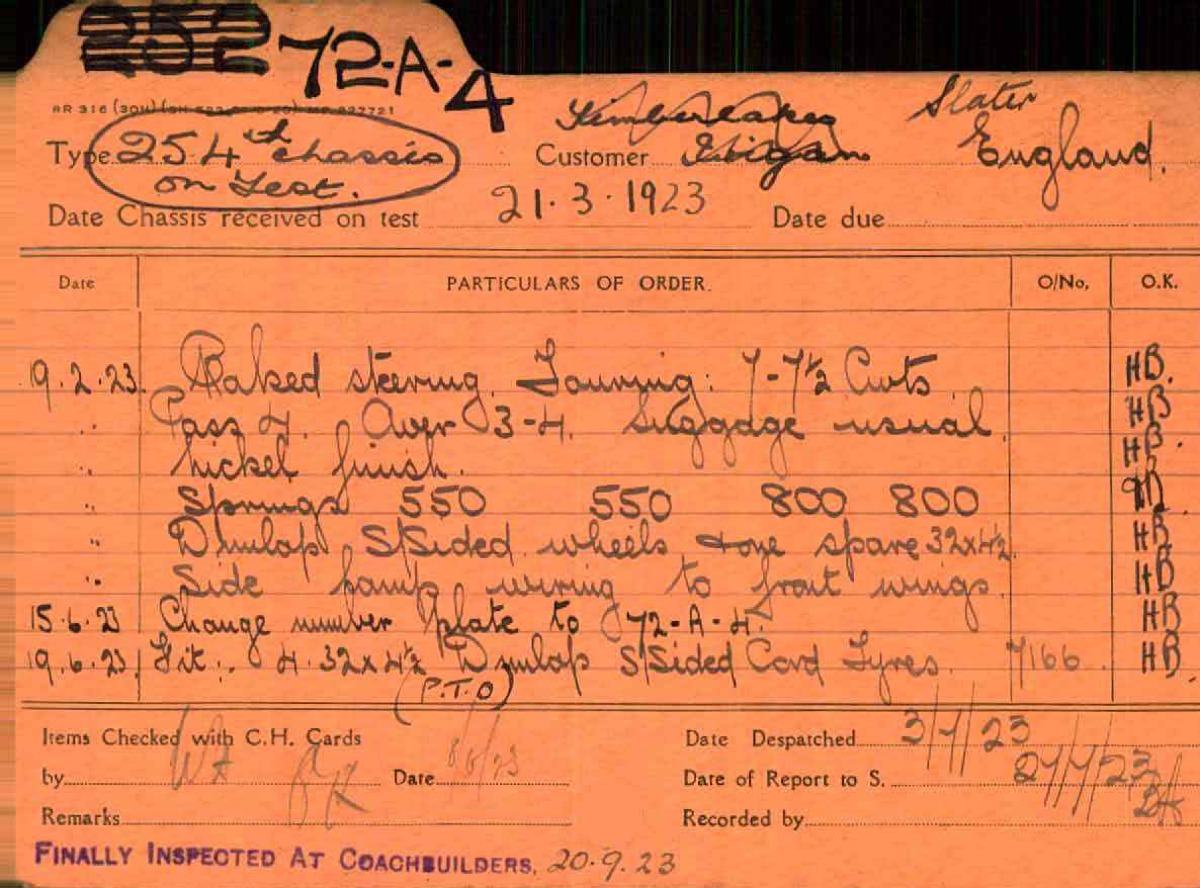 252 72-A-4
Slater
Type 254th chassis Customer England.
on Test.
Date Chassis received on test 21.3.1923 Date due
Date PARTICULARS OF ORDER. O/No, O.K.
19.2.23. Raked steering. Touring: 7-7½ Cwts HB.
" Pass 4. Aver 3-4. Luggage usual. HB
" Nickel finish. HB.
" Springs 550 550 800 800
" Dunlop S/Sided wheels & one spare 32x4½. HB
" Side lamp wiring to front wings. HB
15.6.23 Change number plate to 72-A-4. HB
19.6.23. Fit: 4. 32x4½ Dunlop S/Sided Cord Tyres. 7166 HB.
(P.T.O)
Items Checked with C.H. Cards Date Despatched 3/7/23
by Date Date of Report to S. 27/7/23
Remarks Recorded by
FINALLY INSPECTED AT COACHBUILDERS, 20.9.23